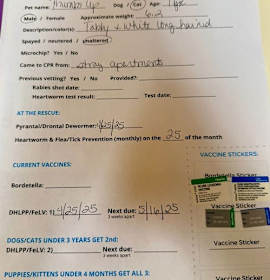 Pet name: Thumbs Up Dog / Cat Age: 1yr
Male / Female Approximate weight:
Description/color(s): Tabby & white long haired
Spayed / neutered / unaltered
Microchip? Yes / No
Came to CPR from: stray apartments
Previous vetting? Yes / No Provided?:
Rabies shot date:
Heartworm test result: Test date:
AT THE RESCUE:
Pyrantal/Drontal Dewormer: 4/25/25
Heartworm & Flea/Tick Prevention (monthly) on the 25 of the month
CURRENT VACCINES:
VACCINE STICKERS:
Bordetella:
Bordetella Sticker
DHLPP/FeLV: 1) 4/25/25 Next due: 5/16/25
3 weeks apart
Vaccine Sticker
DOGS/CATS UNDER 3 YEARS GET 2nd:
DHLPP/FeLV: 2) Next due:
3 weeks apart
Vaccine Sticker
PUPPIES/KITTENS UNDER 4 MONTHS GET ALL 3:
Vaccine Sticker